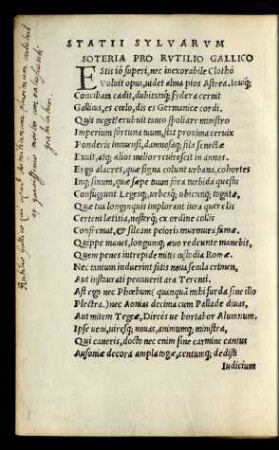 STATII SYLVARVM
SOTERIA PRO RVTILIO GALLICO
EStis iô superi, nec inexorabile Clotho
Voluit opus, uidet alma pios Astrea. Iouiq;
Conciliata cadit, dubitataq; sydera cernit
Gallicus, es cœlo, dis es Germanice cordi.
Quis neget? erubuit tanto spoliare ministro
Imperium fortuna tuum, stat proxima ceruix
Ponderis immensi, damnosaq; fila senectæ
Exuit, atq; alios melior reuirescit in annos.
Ergo alacres, quæ signa colunt urbana, cohortes
Inq; sinum, quæ sæpe tuum fora turbida questu
Confugiunt Legesq;, urbesq; ubicunq; togatæ,
Quæ tua longinquis implorant iura querelis
Certent lætitia, nostrq; ex ordine collis
Confremat, & sileant peioris murmura famæ.
Quippe manet, longumq; æuo redeunte manebit,
Quem penes intrepidæ mitis custodia Romæ.
Nec tantum induerint fatis noua secula crimen,
Aut instaurati peccauerit ara Terenti.
Ast ego nec Phœbum (quanquā mihi surda sine illo
Plectra) nec Aonias decima cum Pallade diuas,
Aut mitem Tegeæ, Dirces ue hortabor Alumnum.
Ipse ueni, uiresq; nouas, animumq; ministra,
Qui caneris, docto nec enim sine carmine tantus
Ausoniæ decora ampla togæ, centumq; dedisti
Iudicium